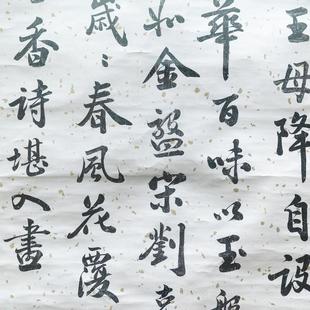 王母降自设
華百味以玉盤
如金盌宋劉
歲〻春風花覆
香詩堪入畫